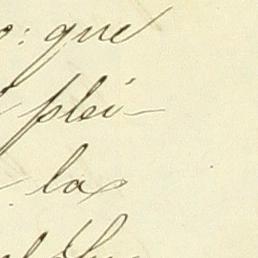 o: que
plei-
la